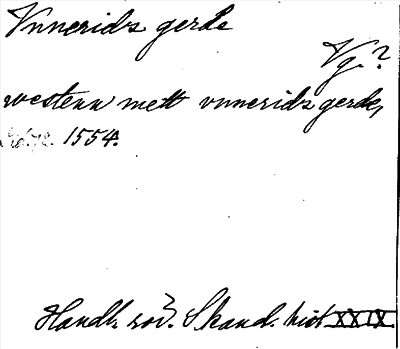 Vnnerids gerde
Vg.?
westenn mett vnnerids gerde,
1554.
Handl. rör. Skand. hist XXIX.